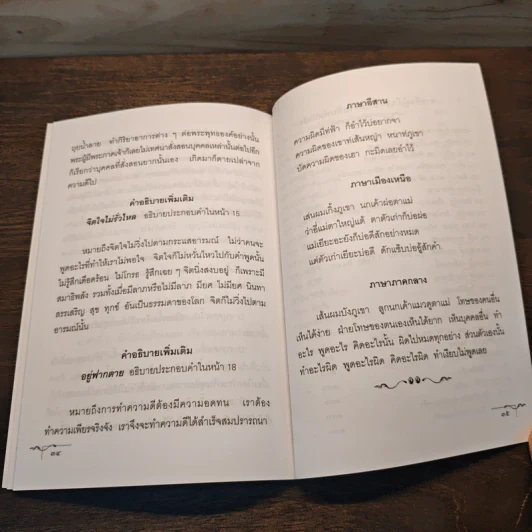 ถุยน้ำลาย ทำกิริยาอาการต่าง ๆ ต่อพระพุทธองค์อย่างนั้น
พระผู้มีพระภาคเจ้าก็เลยไม่เทศนาสั่งสอนบุคคลเหล่านั้นต่อไปอีก
ก็เรียกว่าบุคคลที่สั่งสอนยากนั้นเอง เกิดมาก็ตายเปล่าจาก
ความดีไป
คำอธิบายเพิ่มเติม
จิตใจไม่รั่วไหล อธิบายประกอบคำในหน้า 15
หมายถึงจิตใจไม่วิ่งไปตามกระแสอารมณ์ ไม่ว่าคนจะ
พูดอะไรที่ทำให้เราไม่พอใจ จิตใจก็ไม่หวั่นไหวไปกับคำพูดนั้น
ไม่รู้สึกเดือดร้อน ไม่โกรธ รู้สึกเฉย ๆ จิตนิ่งสงบอยู่ ก็เพราะมี
สมาธิพลัง รวมทั้งเมื่อมีลาภหรือไม่มีลาภ มียศ ไม่มียศ นินทา
สรรเสริญ สุข ทุกข์ อันเป็นธรรมดาของโลก จิตก็ไม่วิ่งไปตาม
อารมณ์นั้น
คำอธิบายเพิ่มเติม
อยู่ฟากตาย อธิบายประกอบคำในหน้า 18
หมายถึงการทำความดีต้องมีความอดทน เราต้อง
ทำความเพียรจริงจัง เราจึงจะทำความดีได้สำเร็จสมปรารถนา
๓๔
ภาษาอีสาน
ความผิดมี่ท่ฟ้า ก็อำไว้บ่อยากจา
ความผิดของเขาท่เส้นหญ้า หนาท่ภูเขา
บัดความผิดของเฮา กะมิดเลยอำไว้
ภาษาเมืองเหนือ
เส้นผมเกิ้งภูเขา นกเค้าผ่อตาแม่
ว่าอี่แม่ตาใหญ่แต้ ตาตัวเก่าก็บ่ผ่อ
แม่เยียะอะยังก็บ่ดีสักอย่างหมด
แต่ตัวเก่าเยียะบ่อดี ดักแซ็บบ่อรู้สักคำ
ภาษาภาคกลาง
เส้นผมบังภูเขา ลูกนกเค้าแมวดูตาแม่ โทษของคนอื่น
เห็นได้ง่าย ฝ่ายโทษของตนเองเห็นได้ยาก เห็นบุคคลอื่น ทำ
อะไร พูดอะไร คิดอะไรนั้น ผิดไปหมดทุกอย่าง ส่วนตัวเองนั้น
ทำอะไรผิด พูดอะไรผิด คิดอะไรผิด ทำเงียบไม่พูดเลย
๓๕